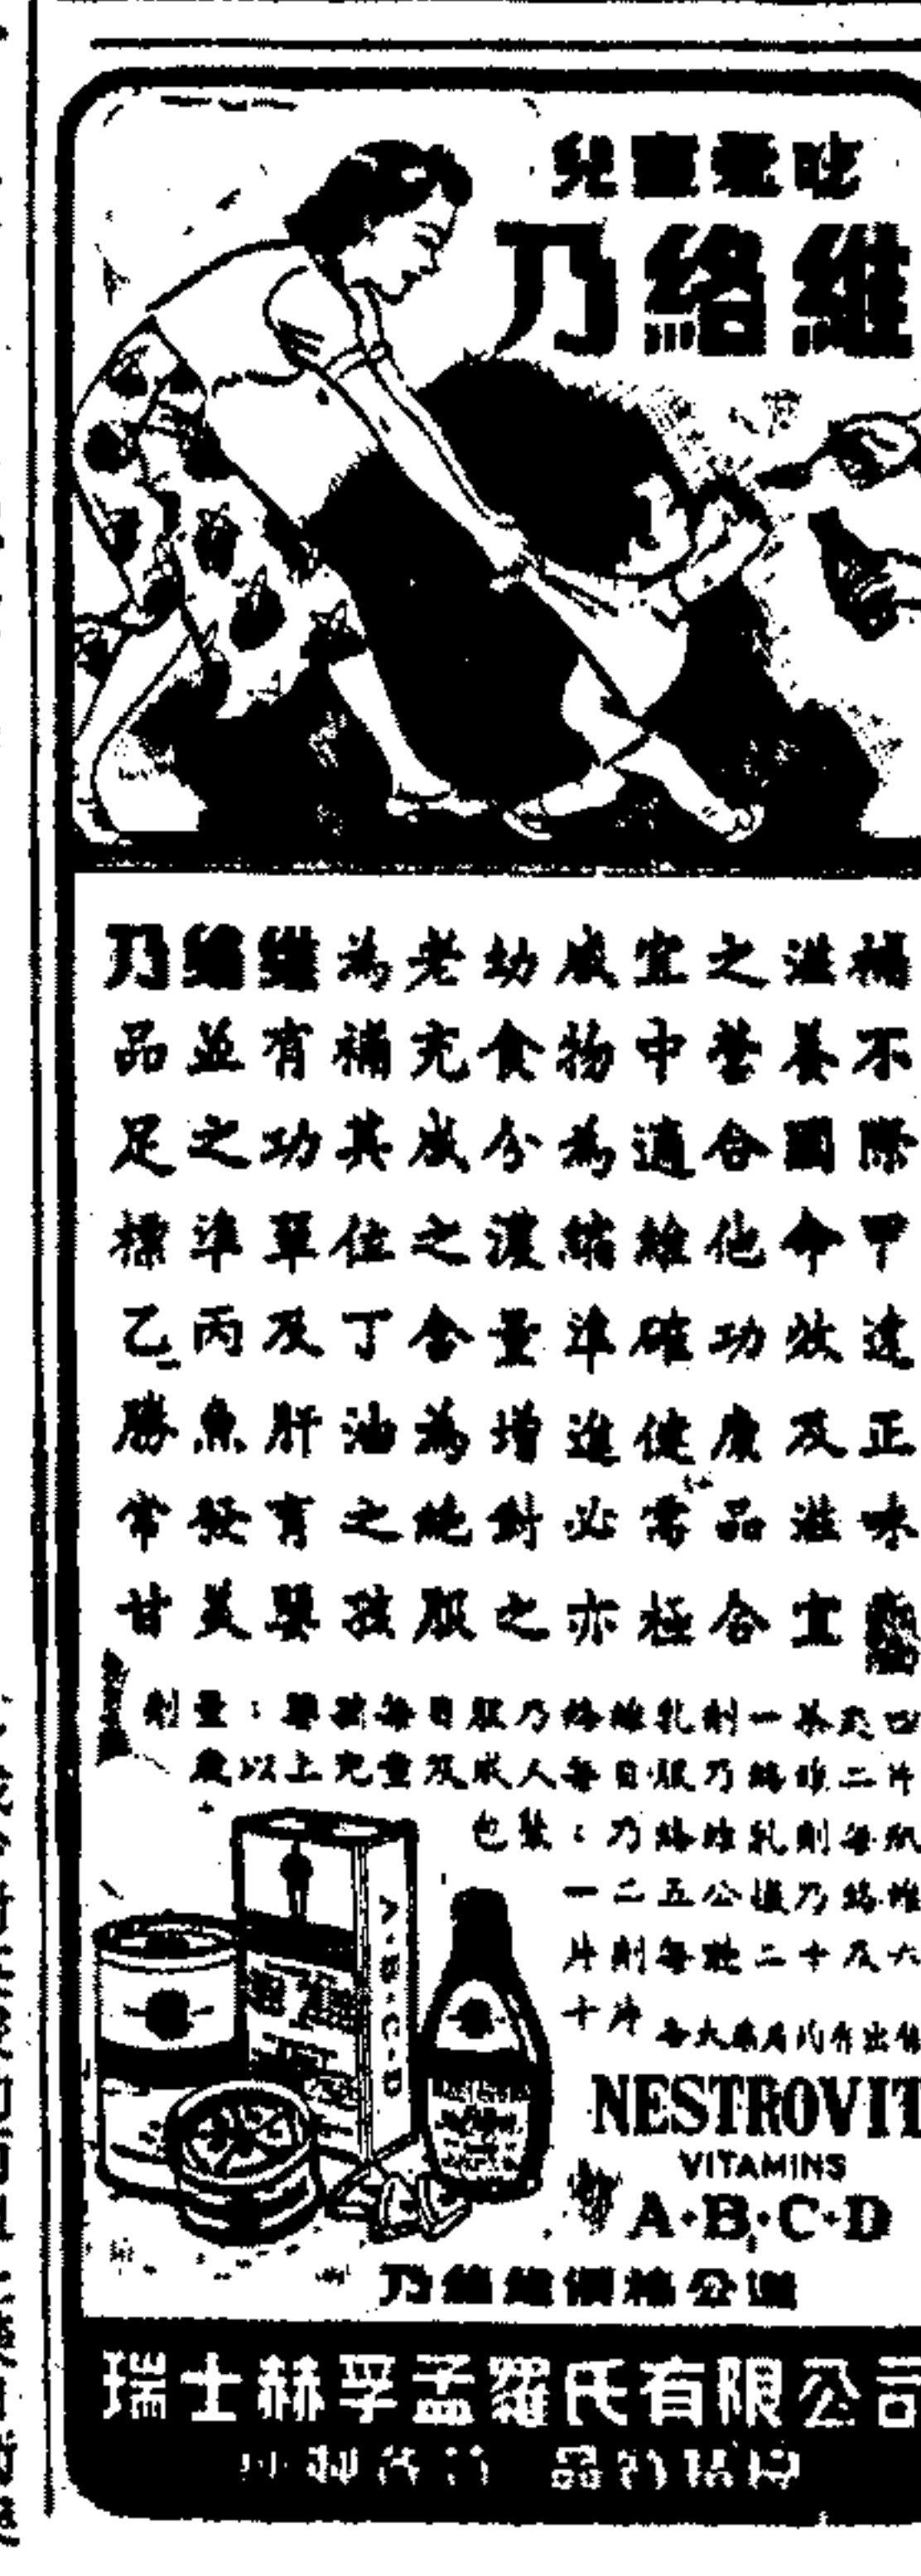 兒童愛吃
乃絡維
乃絡維為老幼咸宜之滋補
品並有補充食物中營養不
足之功其成分為適合國際
標準單位之濃縮維他命甲
乙丙及丁含量準確功效遠
勝魚肝油為增進健康及正
常發育之絕對必需品滋味
甘美嬰孩服之亦極合宜
劑量：嬰孩每日服乃絡維乳劑一茶匙四
歲以上兒童及成人每日服乃絡維二片
包裝：乃絡維乳劑每瓶
一二五公撮乃絡維
片劑每聽二十及六
十片
各大藥房均有出售
A·B·C·D
NESTROVIT
VITAMINS
A·B·C·D
乃絡維價格公道
瑞士赫孚孟羅氏有限公司